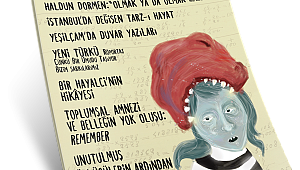 HALDUN DORMEN: "OLMAK YA DA OLMAK
İSTANBUL'DA DEĞİŞEN TARZ-I HAYAT
YEŞİLÇAM'DA DUVAR YAZILARI
YENİ TÜRKÜ RÖPORTAJ
ÇÜNKÜ BİR UMUDU TAŞIYOR
BİZİM ŞARKILARIMIZ
BİR HAYALCİ'NİN
HİKÂYESİ
TOPLUMSAL AMNEZİ
VE BELLEĞİN YOK OLUŞU:
REMEMBER
UNUTULMUŞ
ARDINDAN